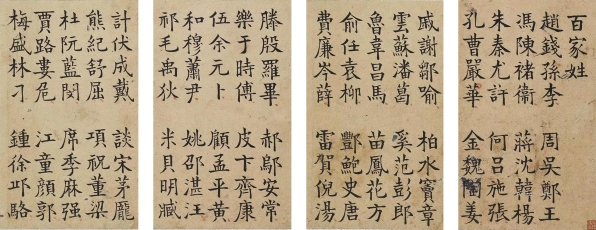 百家姓
趙錢孫李 周吳鄭王
馮陳褚衞 蔣沈韓楊
朱秦尤許 何呂施張
孔曹嚴華 金魏陶姜
戚謝鄒喻 柏水竇章
雲蘇潘葛 奚范彭郎
魯韋昌馬 苗鳳花方
俞任袁柳 酆鮑史唐
費廉岑薛 雷賀倪湯
滕殷羅畢 郝鄔安常
樂于時傅 皮卞齊康
伍余元卜 顧孟平黃
和穆蕭尹 姚邵湛汪
祁毛禹狄 米貝明臧
計伏成戴 談宋茅龐
熊紀舒屈 項祝董梁
杜阮藍閔 席季麻强
賈路婁危 江童顏郭
梅盛林刁 鍾徐邱駱